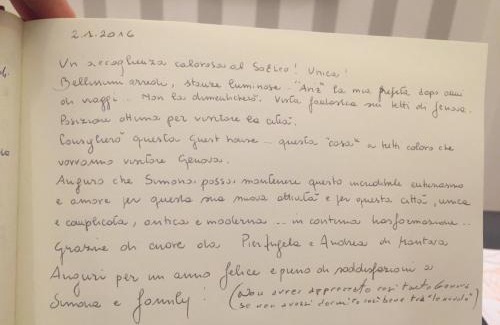 2.1.2016
Un accoglienza calorosa al Solito! Unica!
Bellissimi arredi, stanze luminose. "Anz" la mia preferita dopo anni
di viaggi. Non la dimenticherò. Vista fantastica sui tetti di Genova.
Posizione ottima per visitare la città.
Consiglierò questa Guest house... questa "casa" a tutti coloro che
vorranno visitare Genova.
Auguro che Simona possa mantenere questo incredibile entusiasmo
e amore per questa sua nuova attività e per questa città, unica
e complicata, antica e moderna... in continua trasformazione...
Grazie di cuore da Pierangela e Andrea di Mantova
Auguri per un anno felice e pieno di soddisfazioni a
Simona e family! (Non avrei apprezzato così tanto Genova
se non avessi dormito così bene tra "le nuvole")